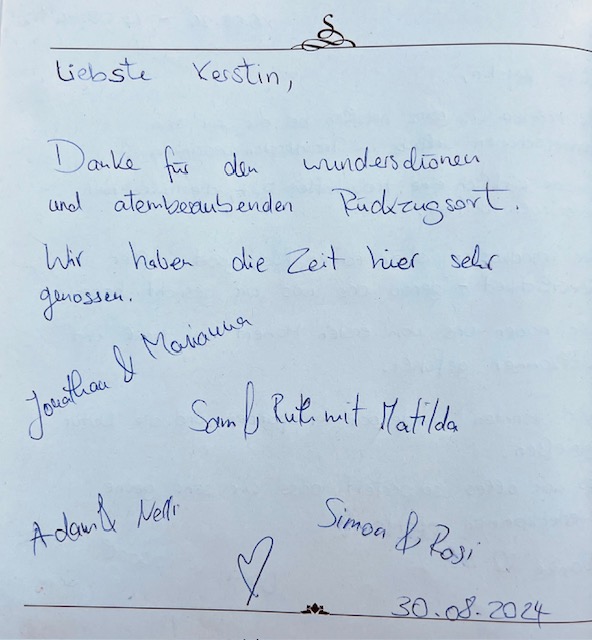 Liebste Kerstin,
Danke für den wunderschönen
und atemberaubenden Rückzugsort.
Wir haben die Zeit hier sehr
genossen.
Jonathan & Marianna
Sam & Ruth mit Matilda
Adam & Nelli
Simon & Rosi
30.08.2024